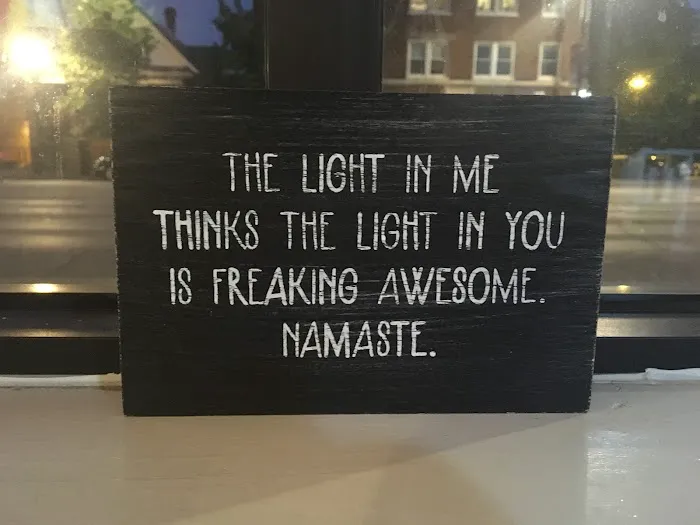 THE LIGHT IN ME
THINKS THE LIGHT IN YOU
IS FREAKING AWESOME.
NAMASTE.